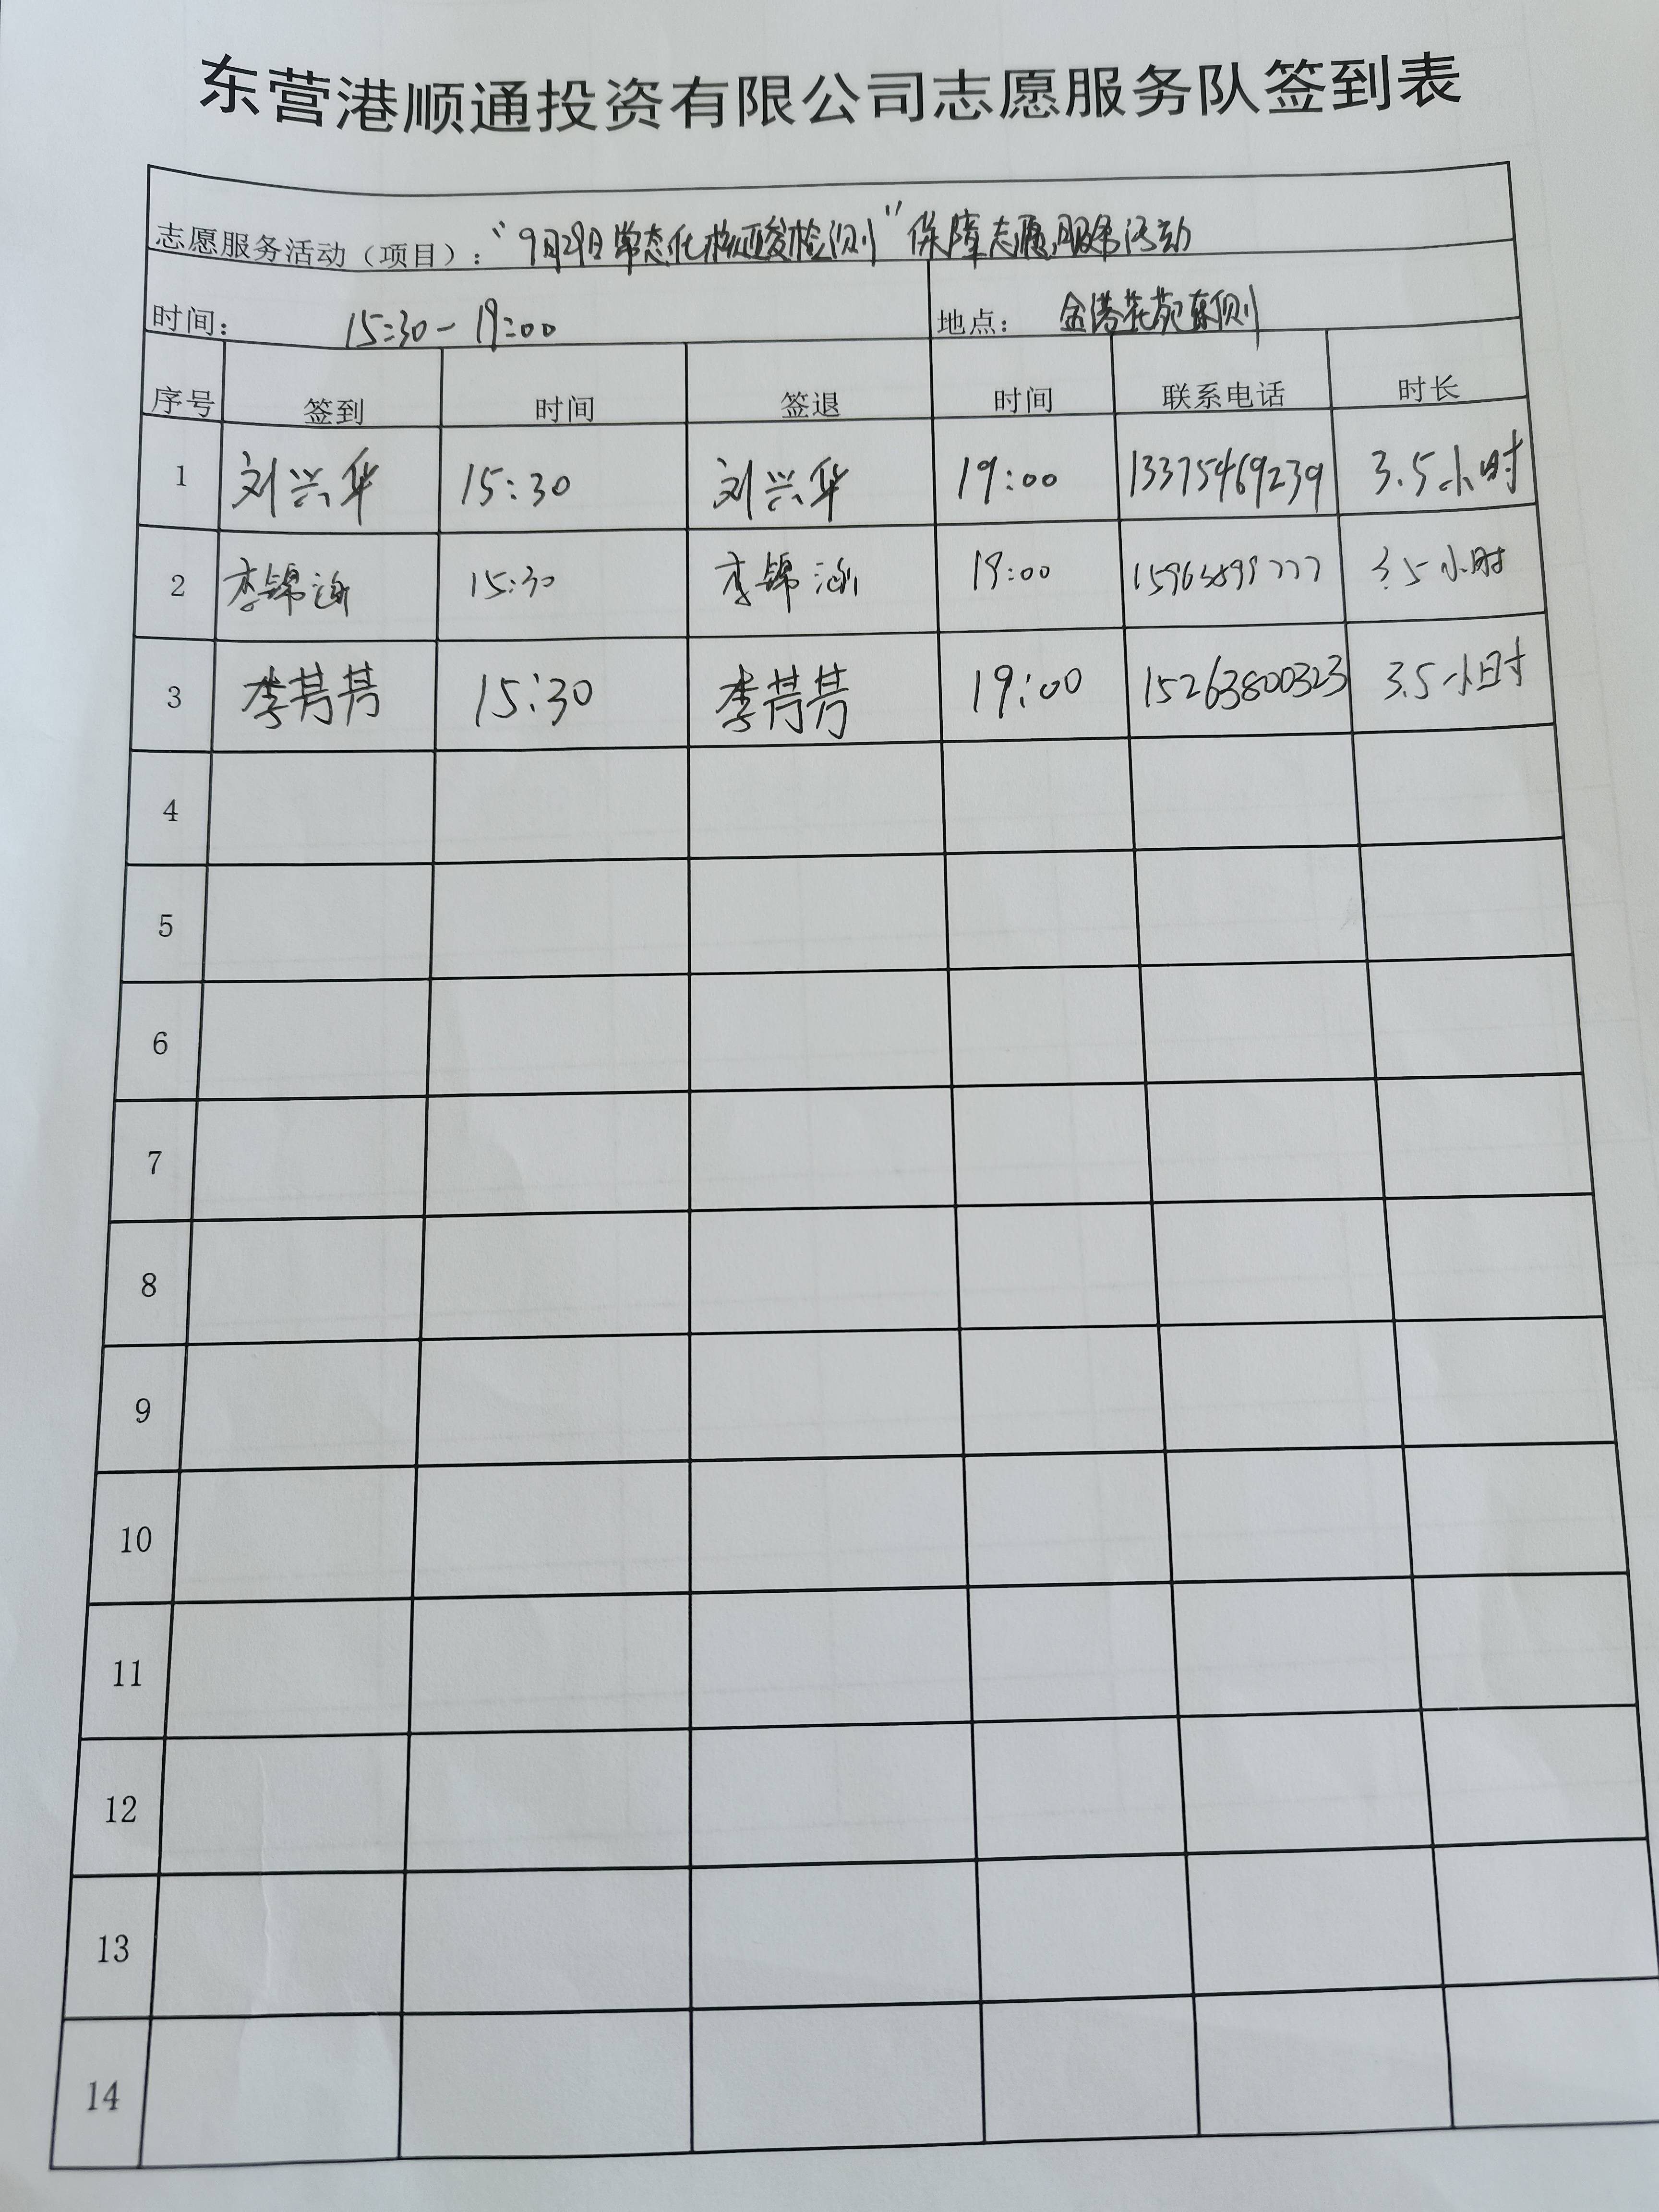 东营港顺通投资有限公司志愿服务队签到表
志愿服务活动（项目）：“9月29日常态化核酸检测”保障志愿服务活动
时间： 15:30-19:00 地点： 金港花苑东侧
序号 签到 时间 签退 时间 联系电话 时长
1 刘兴华 15:30 刘兴华 19:00 13375469239 3.5小时
2 李锦涵 15:30 李锦涵 19:00 3.5小时
3 李芳芳 15:30 李芳芳 19:00 15263800323 3.5小时
4
5
6
7
8
9
10
11
12
13
14